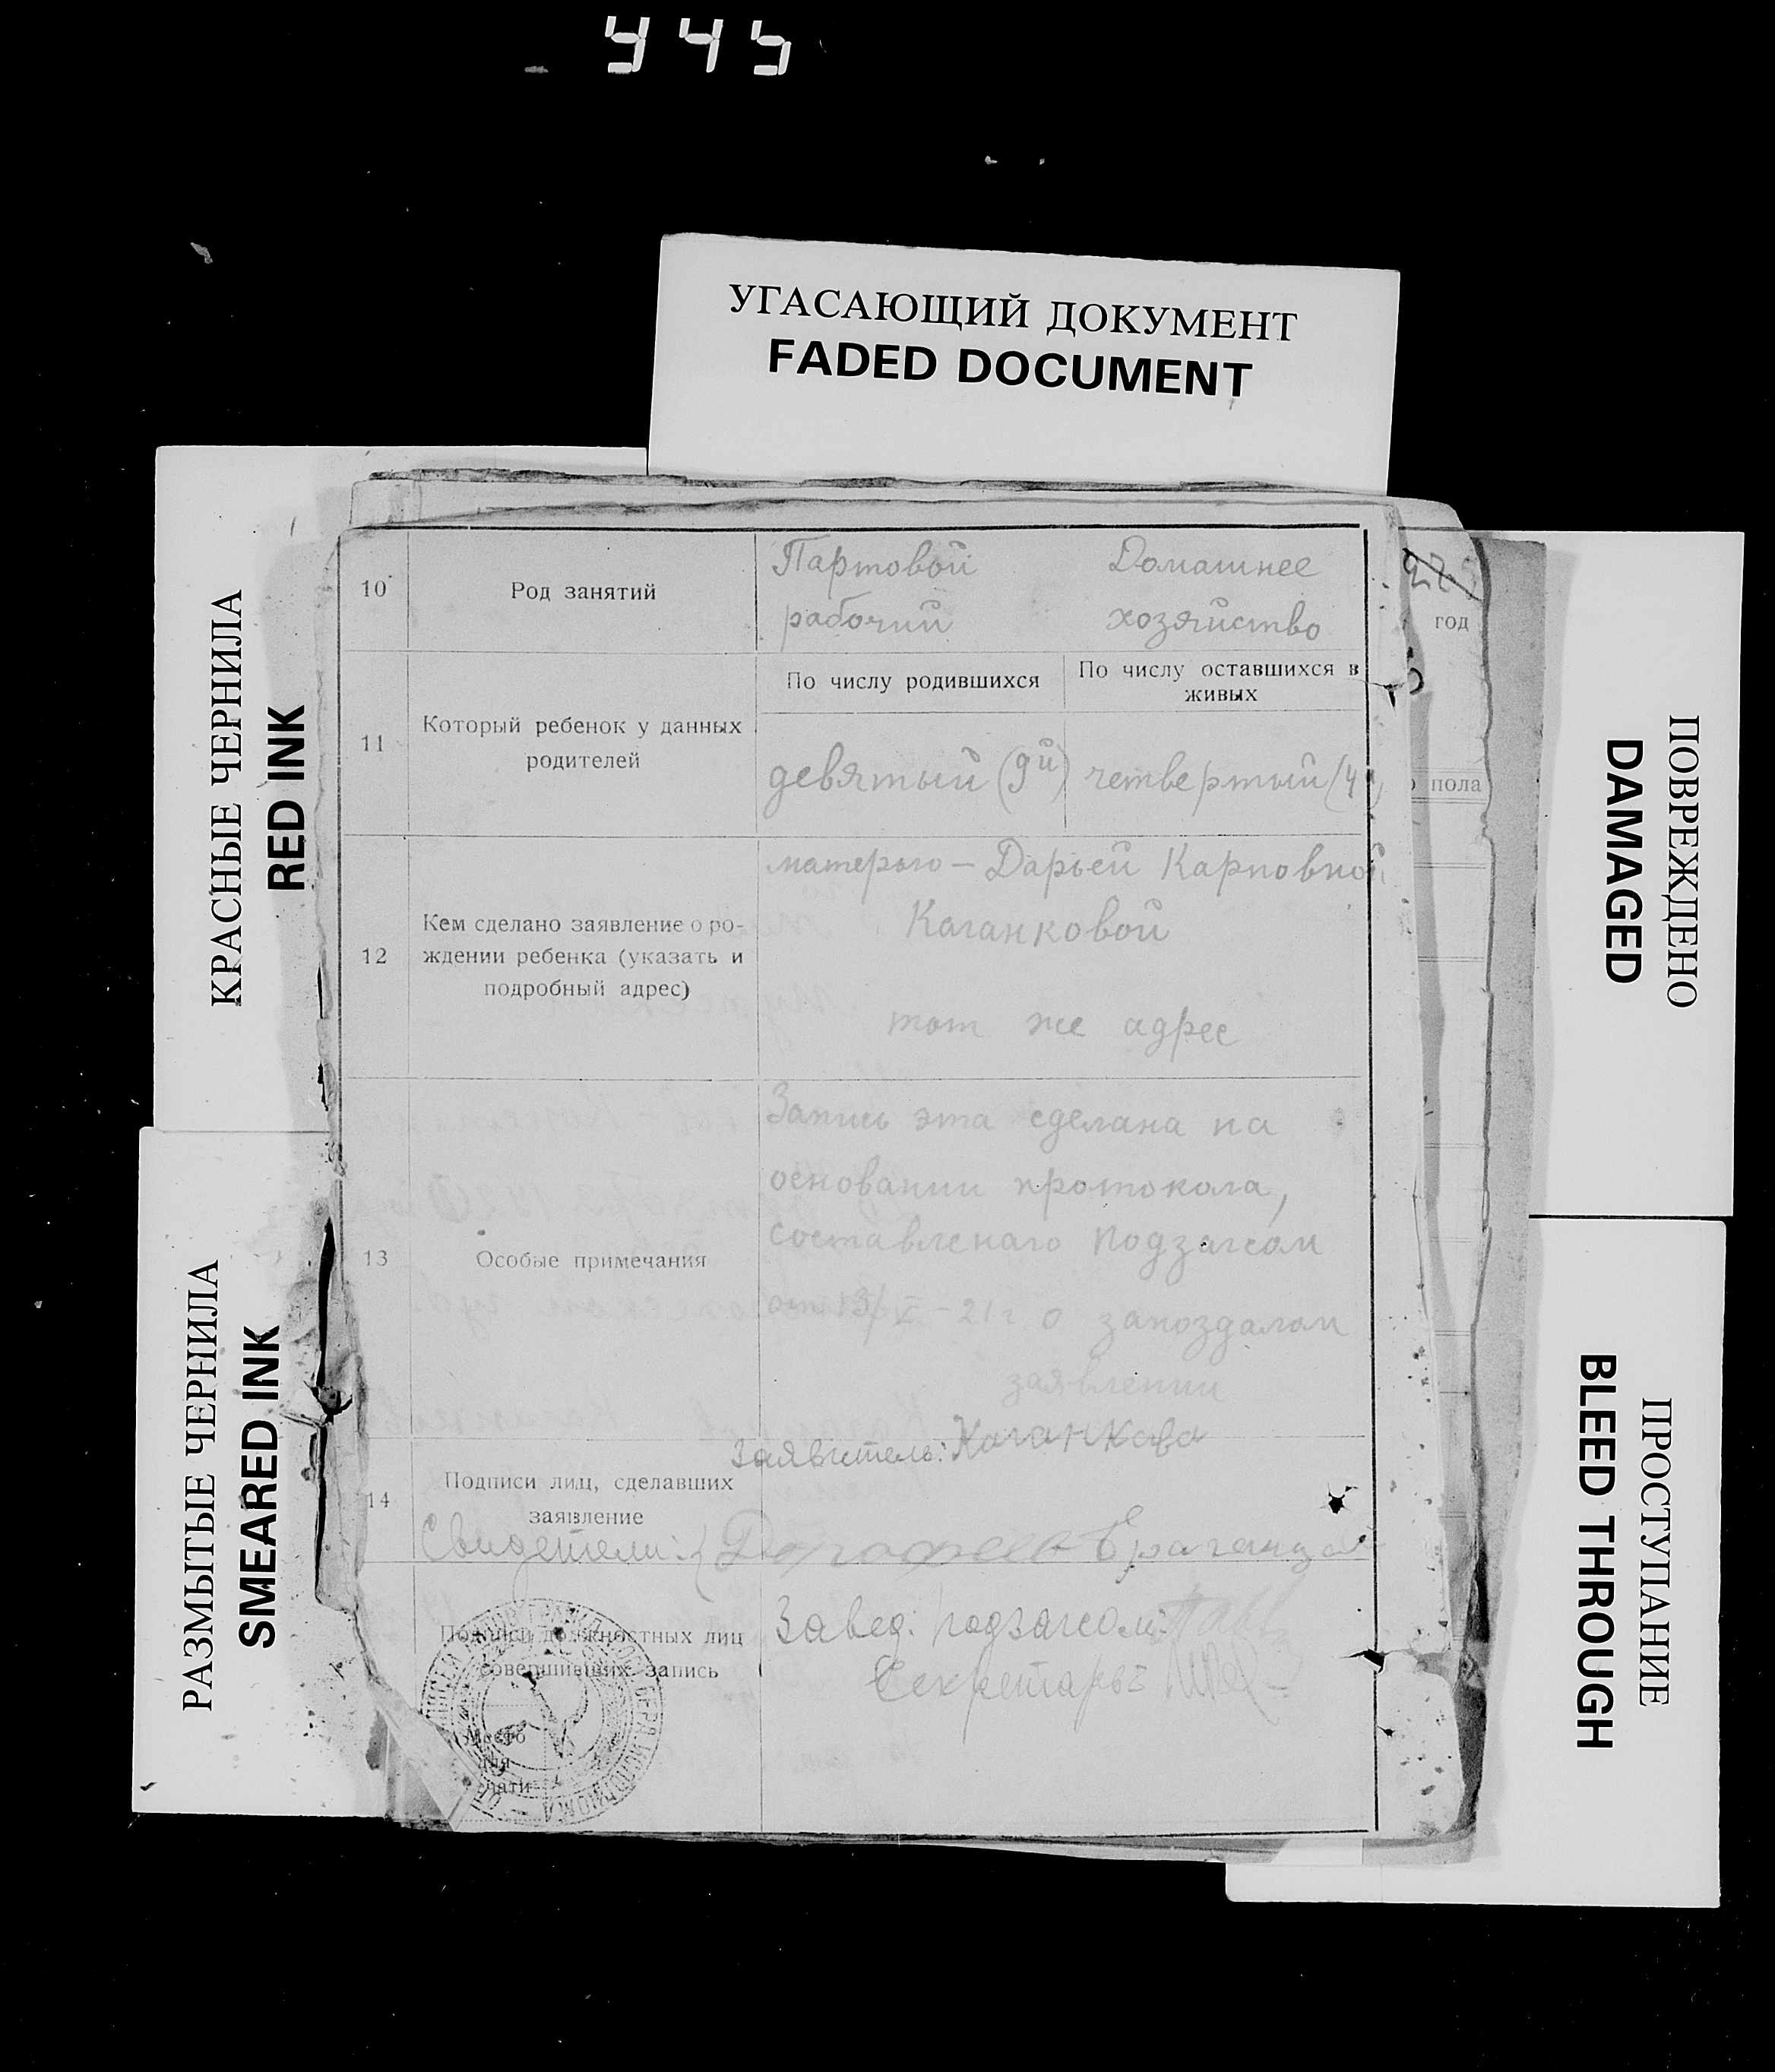 УГАСАЮЩИЙ ДОКУМЕНТ
FADED DOCUMENT
КРАСНЫЕ ЧЕРНИЛА
RED INK
РАЗМЫТЫЕ ЧЕРНИЛА
SMEARED INK
10
Род занятий
Партовой
рабочий
Домашнее
хозяйство
11
Который ребенок у данных
родителей
По числу родившихся
По числу оставшихся в
живых
девятый (9й)
четвертый (4й)
12
Кем сделано заявление о ро-
ждении ребенка (указать и
подробный адрес)
матерью — Дарьей Карповной
Каганковой
тот же адрес
13
Особые примечания
Запись эта сделана на
основании протокола,
составленаго подзагсом
от 13/V – 21 г. о запоздалом
заявлении
14
Подписи лиц, сделавших
заявление
Заявитель: Каганкова
Свидетели:
Подписи должностных лиц
совершивших запись
Место
для
печати
Завед. подзагсом:
Секретарь
год
пола
ПОВРЕЖДЕНО
DAMAGED
ПРОСТУПАНИЕ
BLEED THROUGH